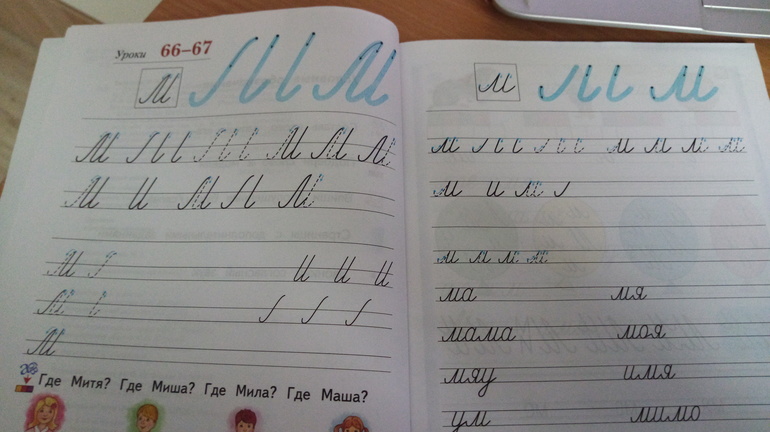 Уроки 66–67
М М
М М М М
М И М М
М И И И
М
М
Где Митя? Где Миша? Где Мила? Где Маша?
м м
м м м м м
м и м
м м м м
ма мя
мама моя
мяу имя
ум мимо